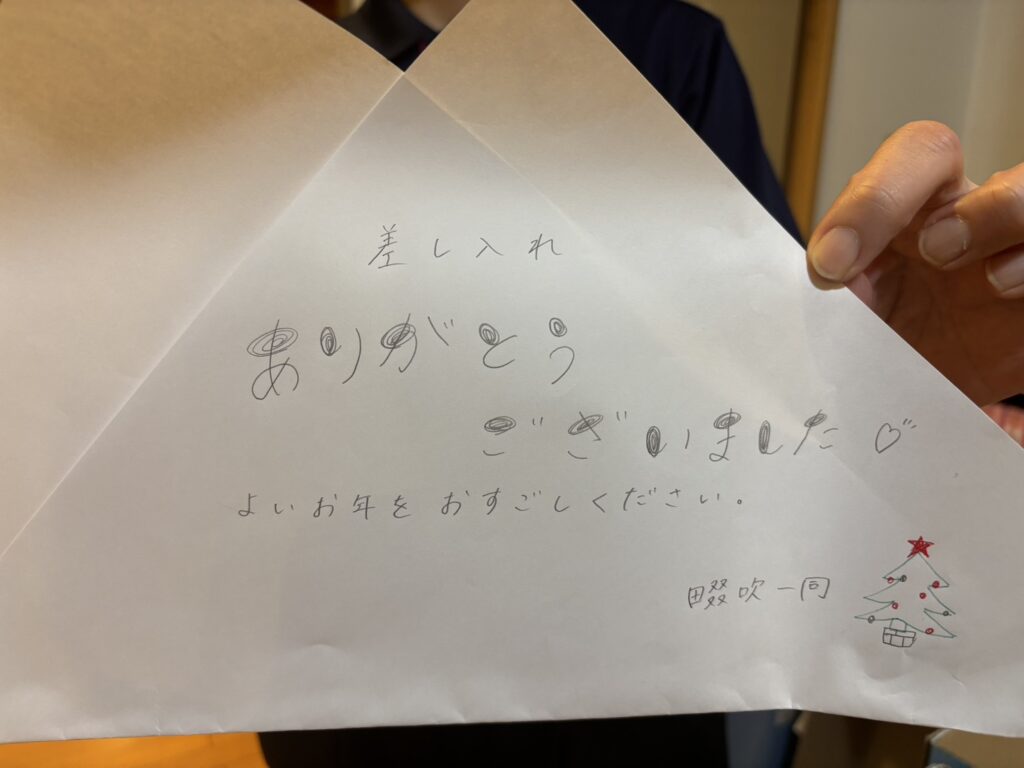 差し入れ
ありがとう
ございました♡
よいお年をおすごしください。
畷吹一同